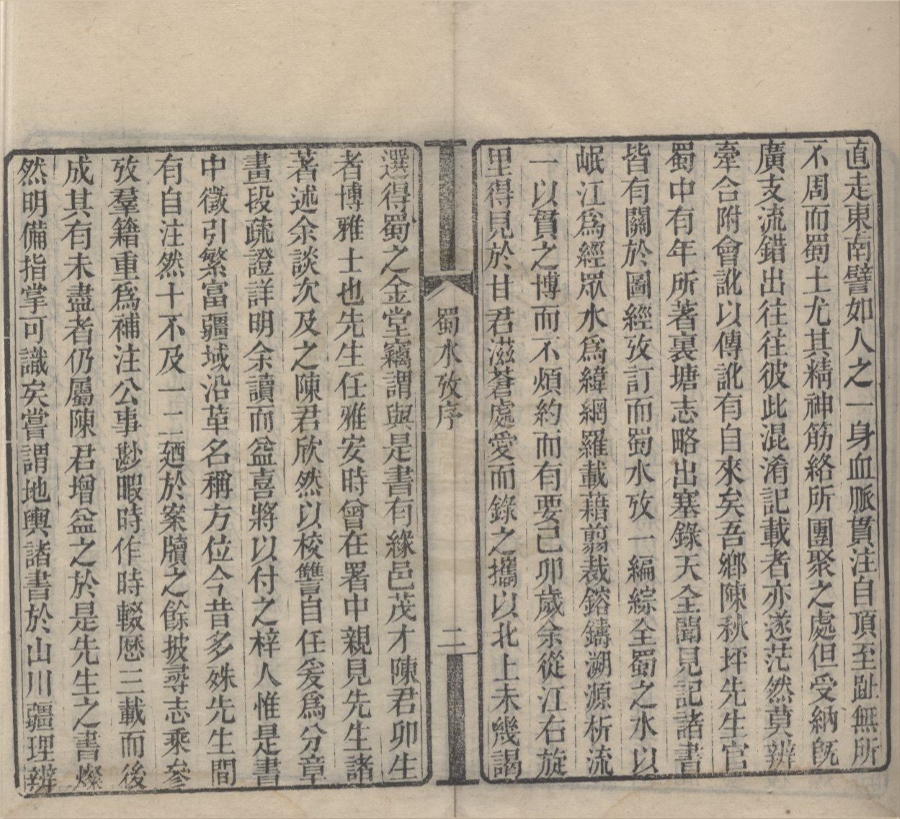 直走東南譬如人之一身血脈貫注自頂至趾無所
不周而蜀土尤其精神筋絡所團聚之處但受納旣
廣支流錯出往往彼此混淆記載者亦遂茫然莫辨
牽合附會訛以傳訛有自來矣吾鄉陳秋坪先生官
蜀中有年所著裏塘志略出塞錄天全聞見記諸書
皆有關於圖經攷訂而蜀水攷一編綜全蜀之水以
岷江爲經眾水爲緯網羅載藉翦裁鎔鑄溯源析流
一以貫之博而不煩約而有要己卯歲余從江右旋
里得見於甘君滋蒼處愛而錄之攜以北上未幾謁
蜀水攷序
二
選得蜀之金堂竊謂與是書有緣邑茂才陳君卯生
者博雅士也先生任雅安時曾在署中親見先生諸
著述余談次及之陳君欣然以校讐自任爰爲分章
畫段疏證詳明余讀而益喜將以付之梓人惟是書
中徵引繁富疆域沿革名稱方位今昔多殊先生間
有自注然十不及一二廼於案牘之餘披尋志乘參
攷羣籍重爲補注公事尠暇時作時輟歷三載而後
成其有未盡者仍屬陳君增益之於是先生之書燦
然明備指掌可識矣嘗謂地輿諸書於山川疆理辨